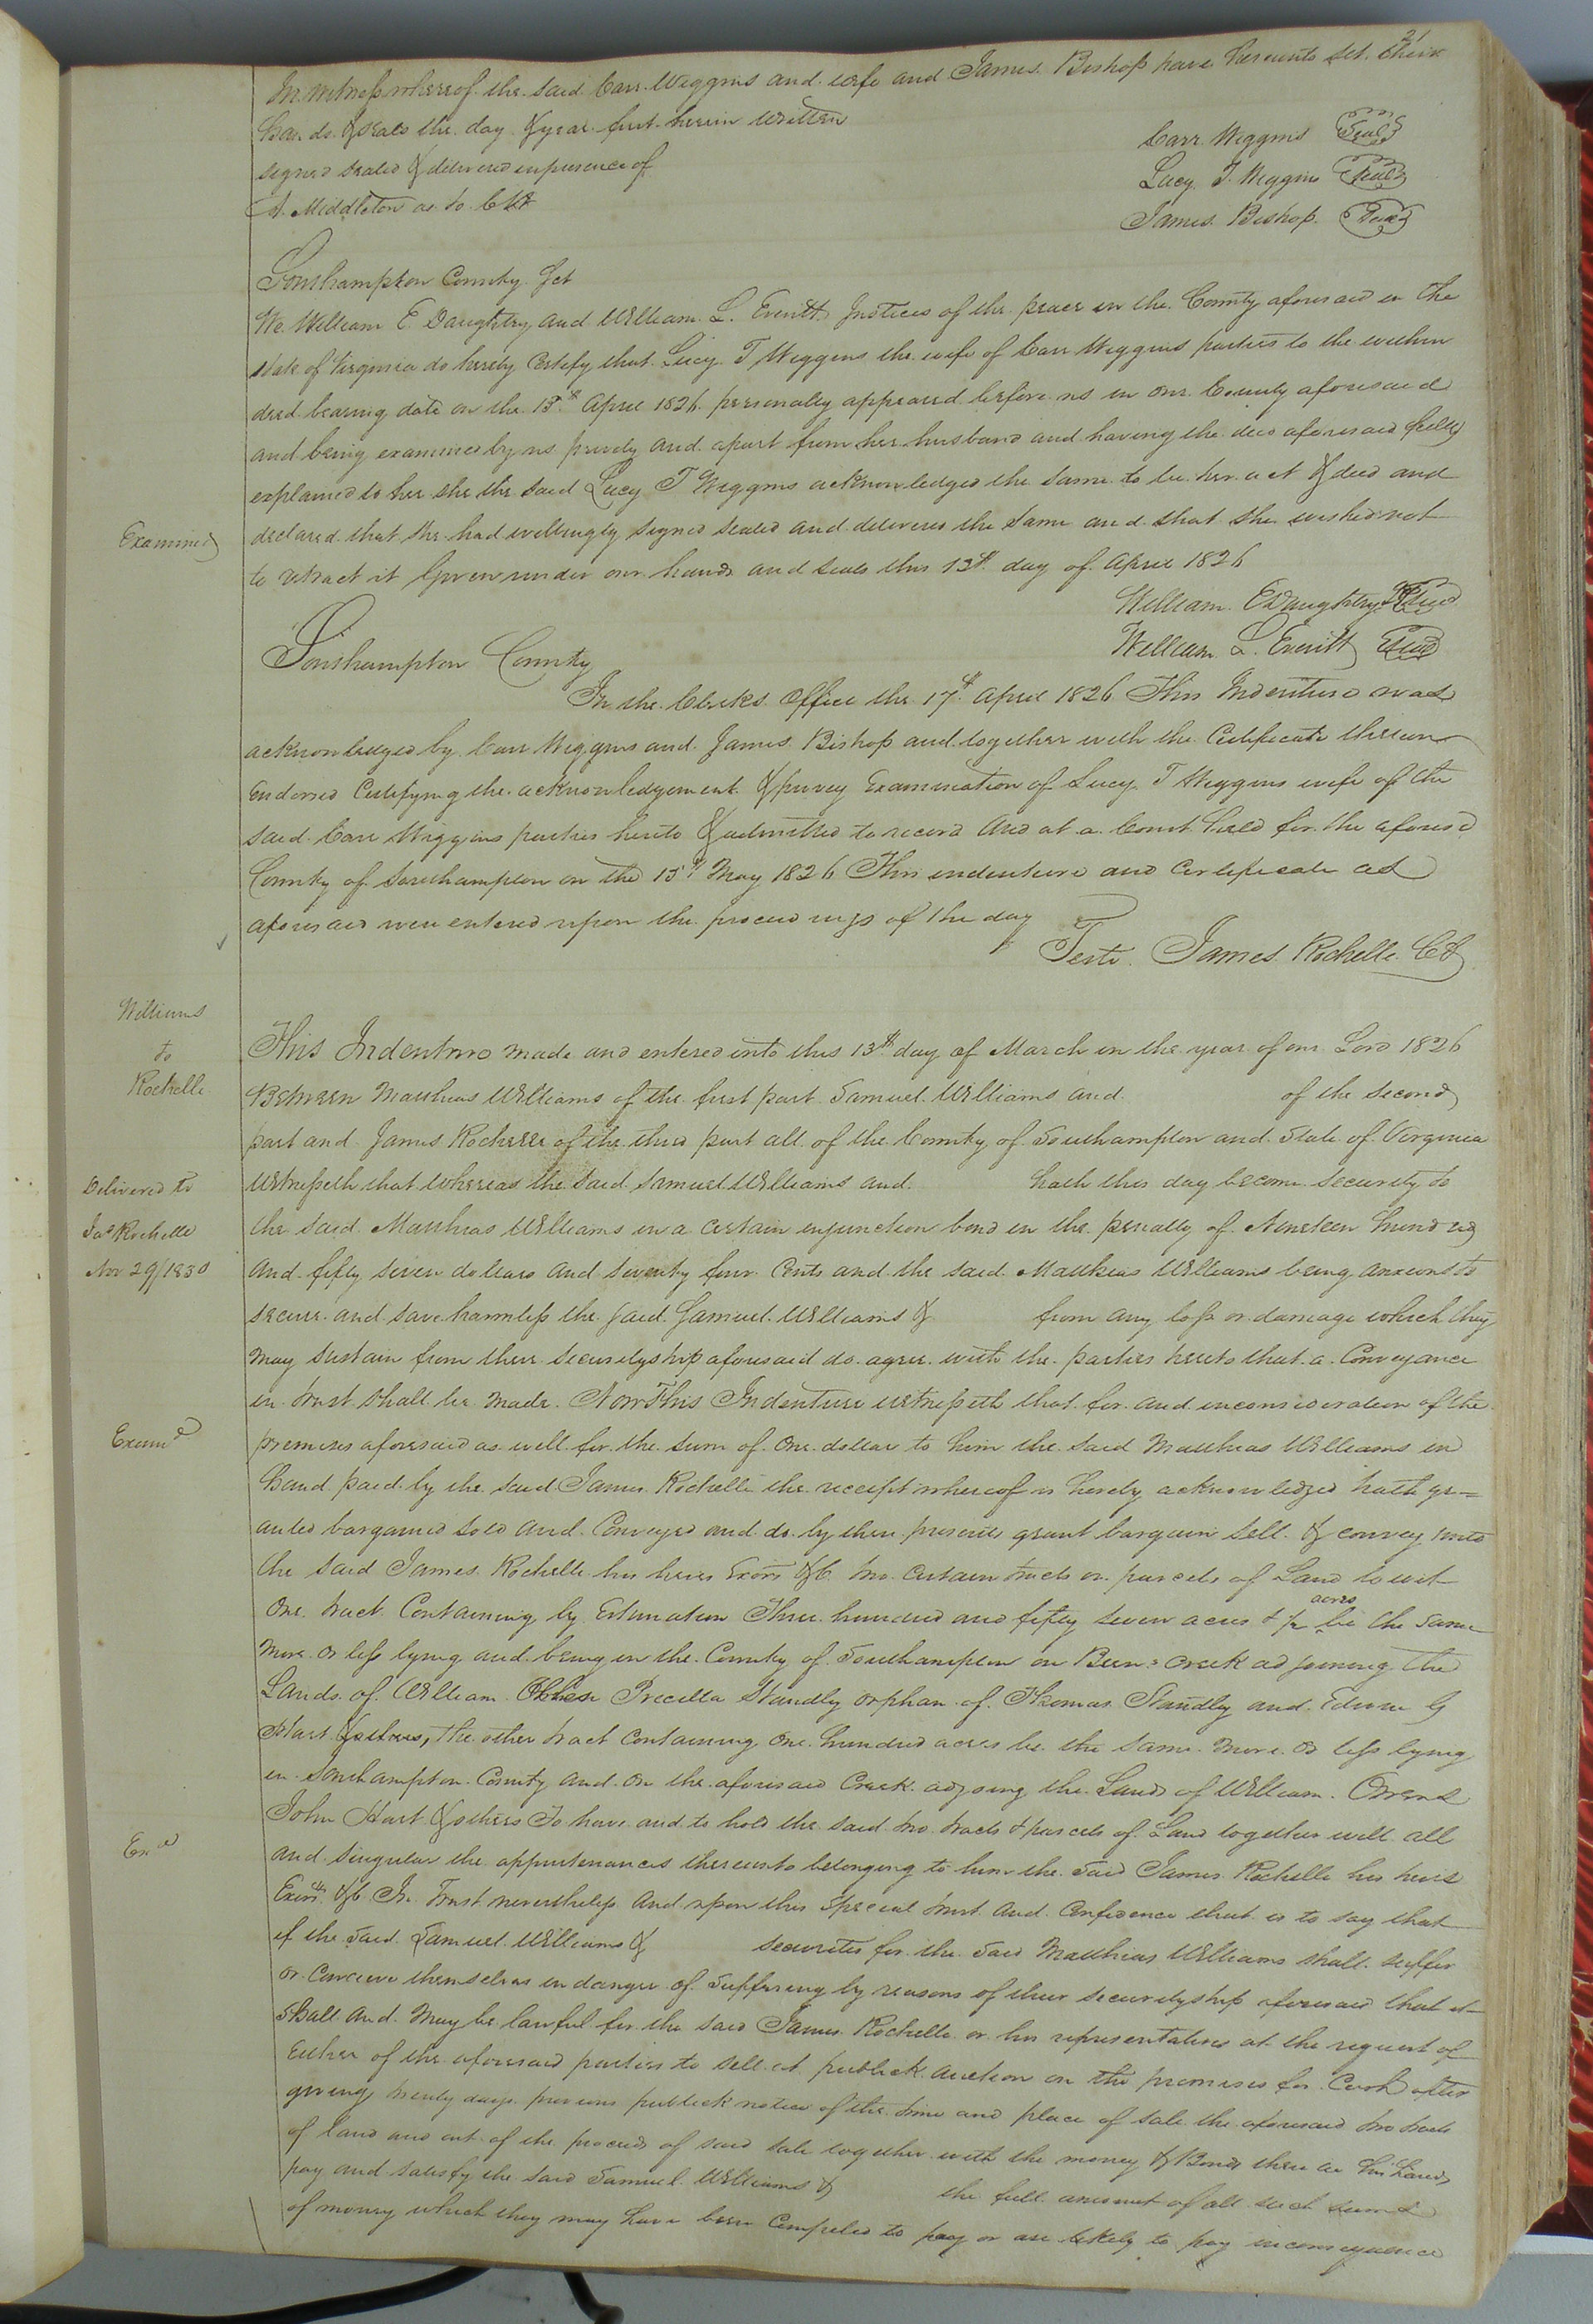 21
In witness whereof the said Carr Wiggins and wife and James Bishop have hereunto set their
hands & seals the day & year first herein written
Carr Wiggins Seal
signed sealed & delivered in presence of
Lucy T Wiggins Seal
A. Middleton as to C W
James Bishop Seal
Southampton County Sct
We William E Daughtry and William L. Everitt Justices of the peace in the County aforesaid in the
State of Virginia do hereby Certify that Lucy T Wiggins the wife of Carr Wiggins parties to the within
deed bearing date on the 13th April 1826 personally appeared before us in our County aforesaid
and being examined by us privily and apart from her husband and having the deed aforesaid fully
explained to her she the said Lucy T Wiggins acknowledged the same to be her act & deed and
Examined
declared that she had willingly signed sealed and delivered the same and that she wished not
to retract it Given under our hands and seals this 13th day of April 1826
William E Daughtry Seal
William L. Everitt Seal
Southampton County
In the Clerks Office the 17th April 1826 This Indenture was
acknowledged by Carr Wiggins and James Bishop and together with the Certificate thereon
Endorsed Certifying the acknowledgement & privey Examination of Lucy T Wiggins wife of the
said Carr Wiggins parties hereto & admitted to record And at a Court held for the aforesd
County of Southampton on the 15th May 1826 This indenture and Certificate as
aforesaid were entered upon the proceedings of the day
Teste James Rochelle CC
Williams
to
Rochelle
This Indenture made and entered into this 13th day of March in the year of our Lord 1826
Between Matthias Williams of the first part Samuel Williams and of the second
part and James Rochelle of the third part all of the County of Southampton and State of Virginia
Delivered to
Witnesseth that whereas the said Samuel Williams and hath this day become security to
Jas Rochelle
the said Matthias Williams in a certain injunction bond in the penalty of Nineteen hundred
Nov 29/1830
and fifty seven dollars and seventy four Cents and the said Matthias Williams being anxious to
secure and save harmless the said Samuel Williams & from any loss or damage which they
may sustain from their securityship aforesaid do agree with the parties hereto that a Conveyance
in trust shall be made. Now This Indenture witnesseth that for and in consideration of the
Examd
premises aforesaid as well for the sum of One dollar to him the said Matthias Williams in
hand paid by the said James Rochelle the receipt whereof is hereby acknowledged hath gr=
anted bargained sold and Conveyed and do by these presents grant bargain sell & convey unto
the said James Rochelle his heirs Exors &c two certain tracts or parcels of Land to wit
One tract Containing by Estimation Three hundred and fifty seven acres & 1/2 acres be the same
more or less lying and being in the County of Southampton on Creek adjoining the
Lands of William Precilla Standly orphan of Thomas Standly and Edwin G
Hart & others, the other tract Containing One hundred acres be the same more or less lying
in Southampton County and on the aforesaid Creek adjoing the Lands of William Owens
John Hart & others To have and to hold the said two tracts & parcels of Land together with all
Exd
and singular the appurtenances thereunto belonging to him the said James Rochelle his heirs
Exors &c In Trust nevertheless and upon this Special trust and Confidence that is to say that
if the said Samuel Williams & securites for the said Matthias Williams shall suffer
or Conceive themselves in danger of suffering by reasons of their securityship aforesaid that it
shall and may be lawful for the said James Rochelle or his representatives at the request of
Either of the aforesaid parties to sell at publick auction on the premises for Cash after
giving twenty days previous publick notice of the time and place of sale the aforesaid two tracts
of land and out of the proceeds of said sale together with the money & Bonds then in his hands
pay and satisfy the said Samuel Williams & the full amount of all such sums
of money which they may have been Compeled to pay or are likely to pay in consequence